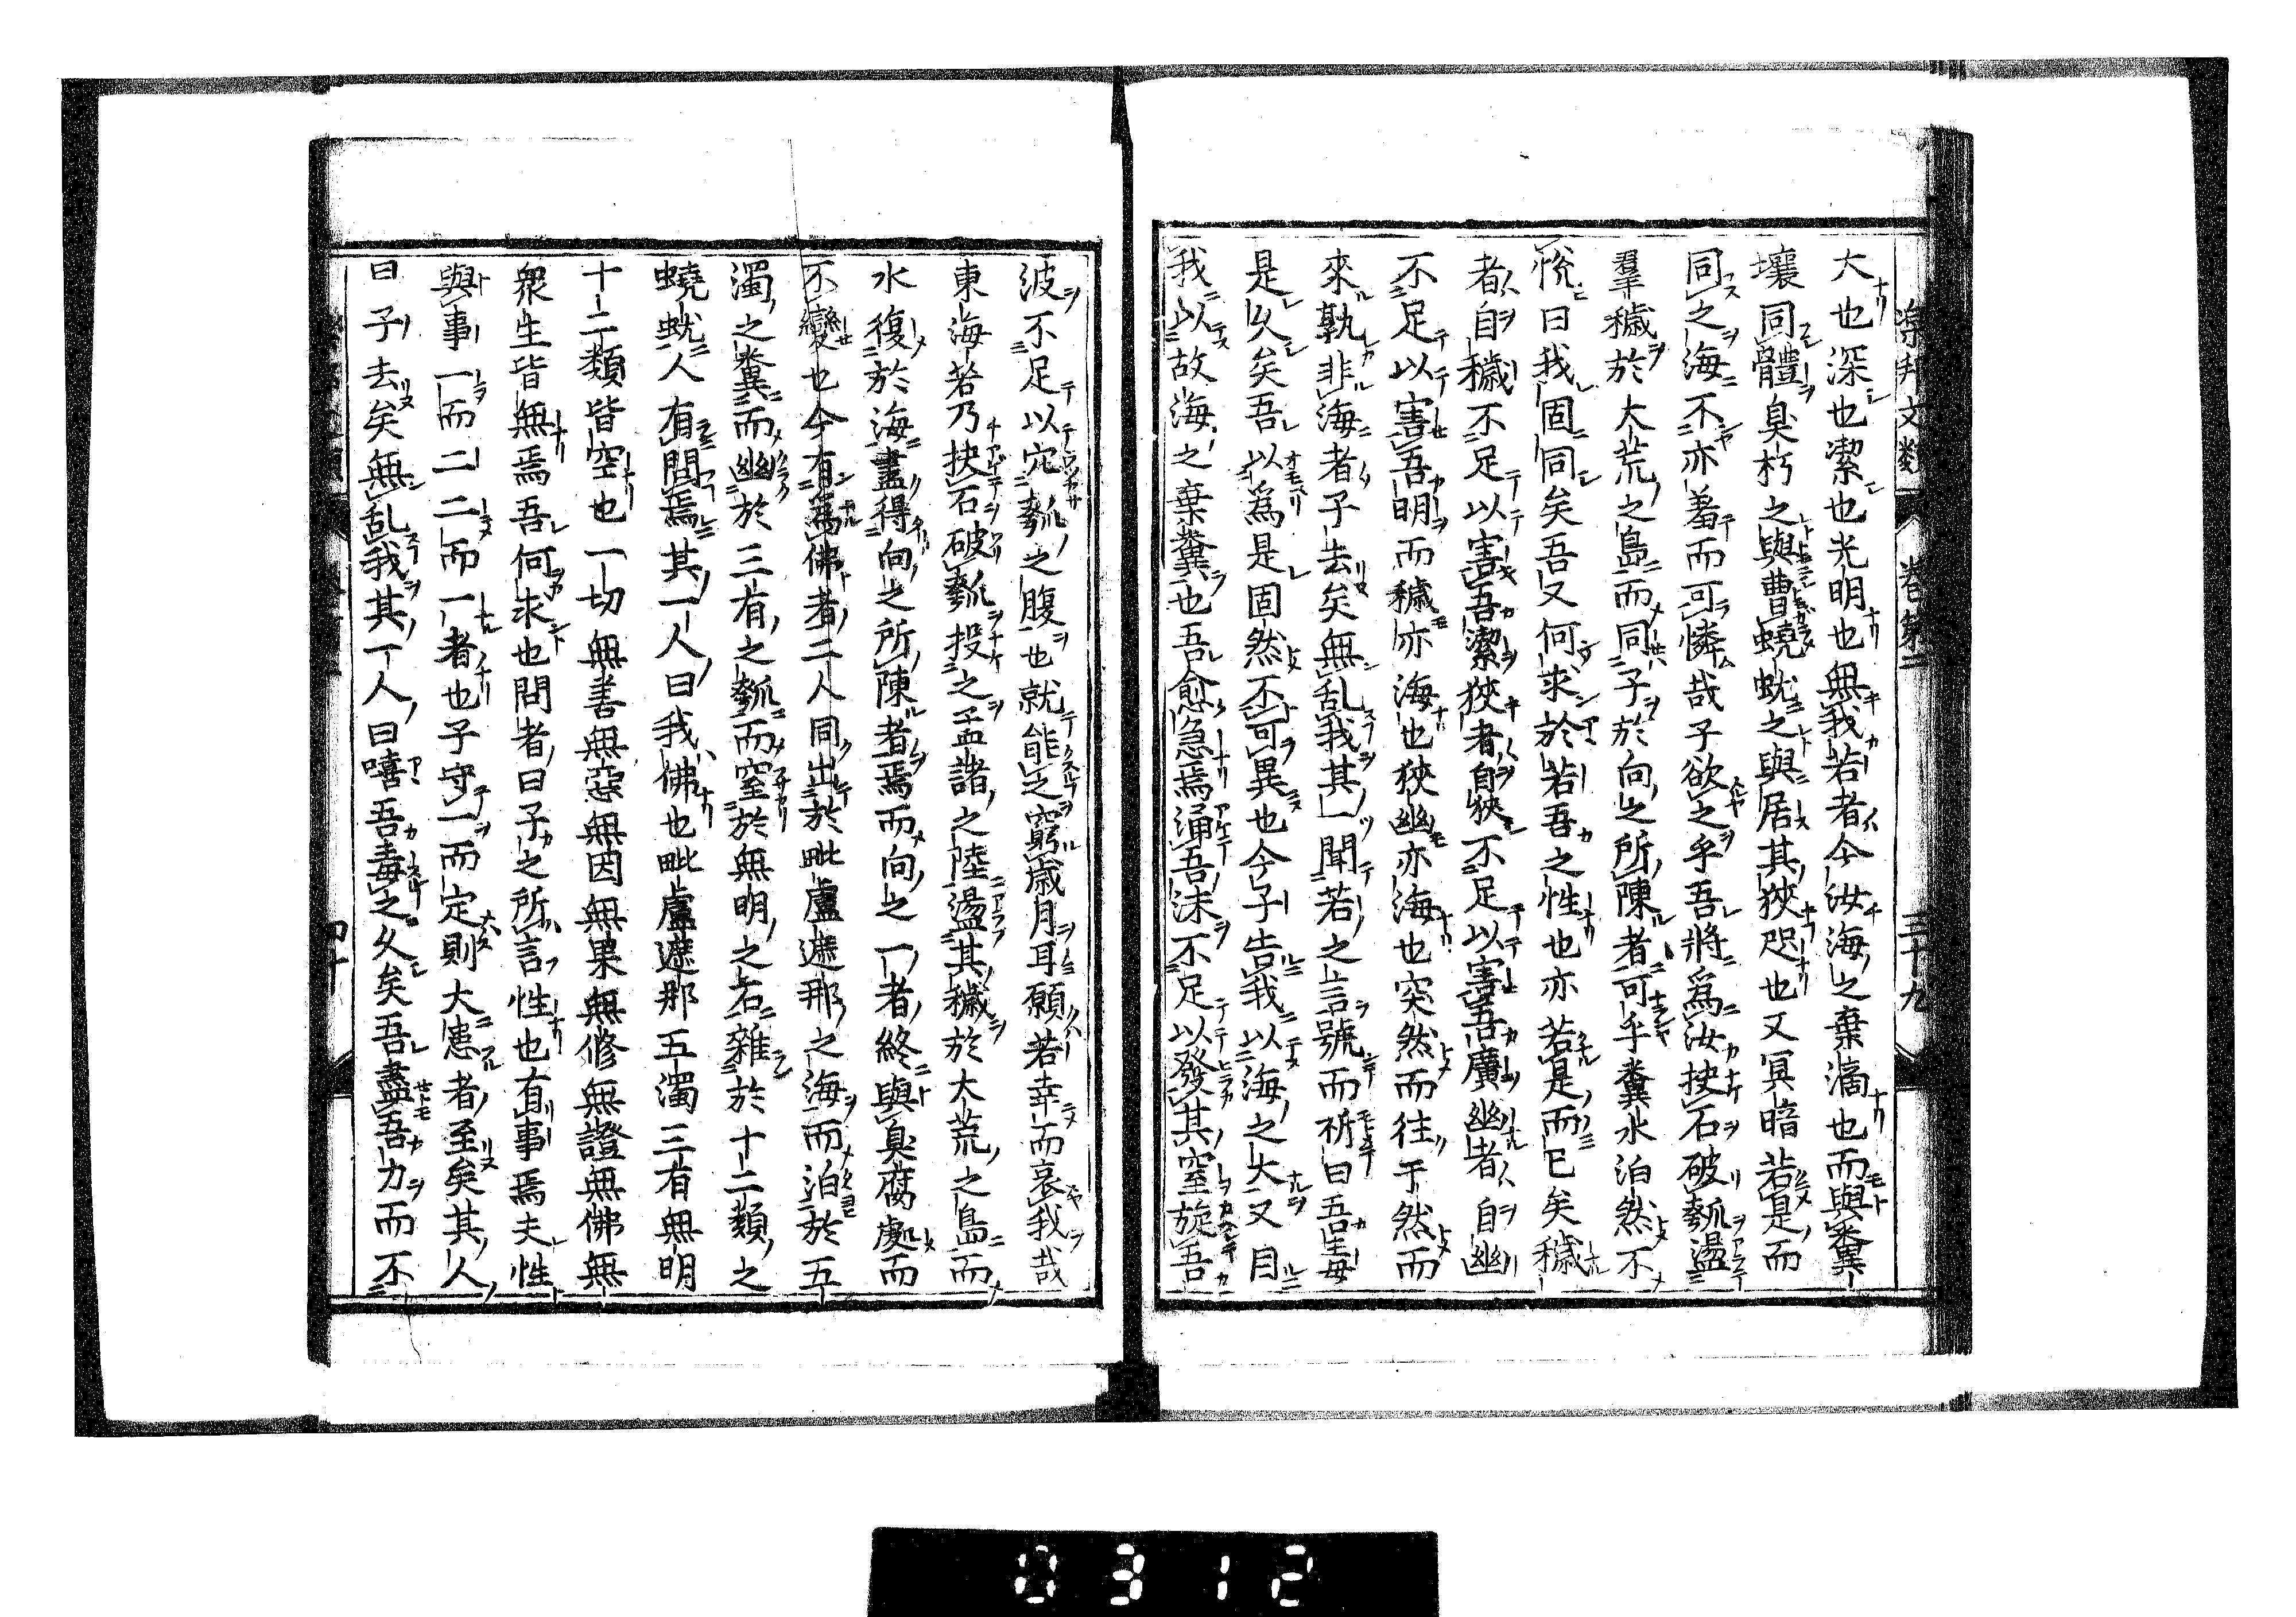 大也深也潔也光明也無我若者今汝海之棄滴也而與糞
壤同體臭朽之與曹蟯蚘之與居其狹咫也又冥暗若是而
同之海不亦羞而可憐哉子欲之乎吾將為汝抉石破瓠盪
羣穢於大荒之島而同子於向之所陳者可乎糞水泊然不
悅曰我固同矣吾又何求於若吾之性也亦若是而已矣穢
者自穢不足以害吾潔狹者自狹不足以害吾廣幽者自幽
不足以害吾明而穢亦海也狹幽亦海也突然而往于然而
來孰非海者子去矣無乱我其一聞若之言號而祈曰吾毒
是久矣吾以為是固然不可異也今子告我以海之大又目
我以故海之棄糞也吾愈急焉涌吾沫不足以發其窒旋吾
波不足以穴瓠之腹也就能之窮歲月耳願若幸而哀我哉
東海若乃抉石破瓠投之孟諸之陸盪其穢於大荒之島而
水復於海盡得向之所陳者焉而向之一者終與臭腐處而
不變也今有為佛者二人同出於毗盧遮那之海而泊於五
濁之糞而幽於三有之瓠而窒於無明之石雜於十二類之
蟯蚘人有問焉其一人曰我佛也毗盧遮那五濁三有無明
十二類皆空也一切無善無惡無因無果無修無證無佛無
衆生皆無焉吾何求也問者曰子之所言性也有事焉夫性
與事一而二二而一者也子守一而定則大患者至矣其人
曰子去矣無乱我其一人曰嘻吾毒之久矣吾盡吾力而不
樂邦文類 卷第二 三十九
四十
0312